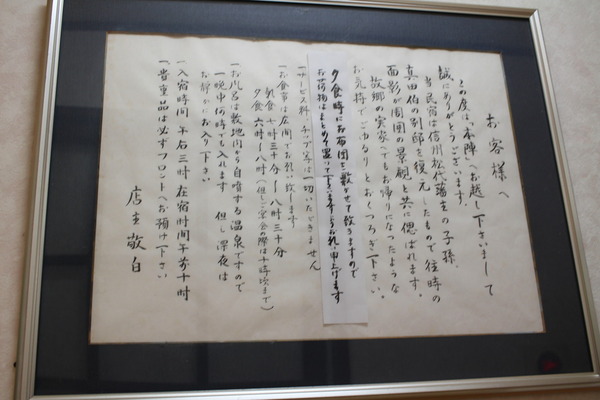 お客様へ
この度は、「本陣」へお越し下さいまして
誠にありがとうございます。
当民宿は信州松代藩主の子孫
真田伯の別邸を復元したもので往時の
面影が周囲の景観と共に偲ばれます。
故郷の実家へでもお帰りになったような
お気持でごゆるりとおくつろぎ下さい。
夕食時にお布団を敷かせて頂きますので
お荷物はまとめて置いて下さいますようお願い申上げます
一サービス料、チップ等は一切いただきません
一お食事は広間でお願い致します
朝食 七時三十分〜八時三十分
夕食 六時〜八時(但し宴会の際は十時頃まで)
一お風呂は敷地内から自噴する温泉ですので
一晩中何時でも入れます 但し深夜は
お静かにお入り下さい
一入宿時間 午后三時 在宿時間 午前十時
一貴重品は必ずフロントへお預け下さい
店主敬白